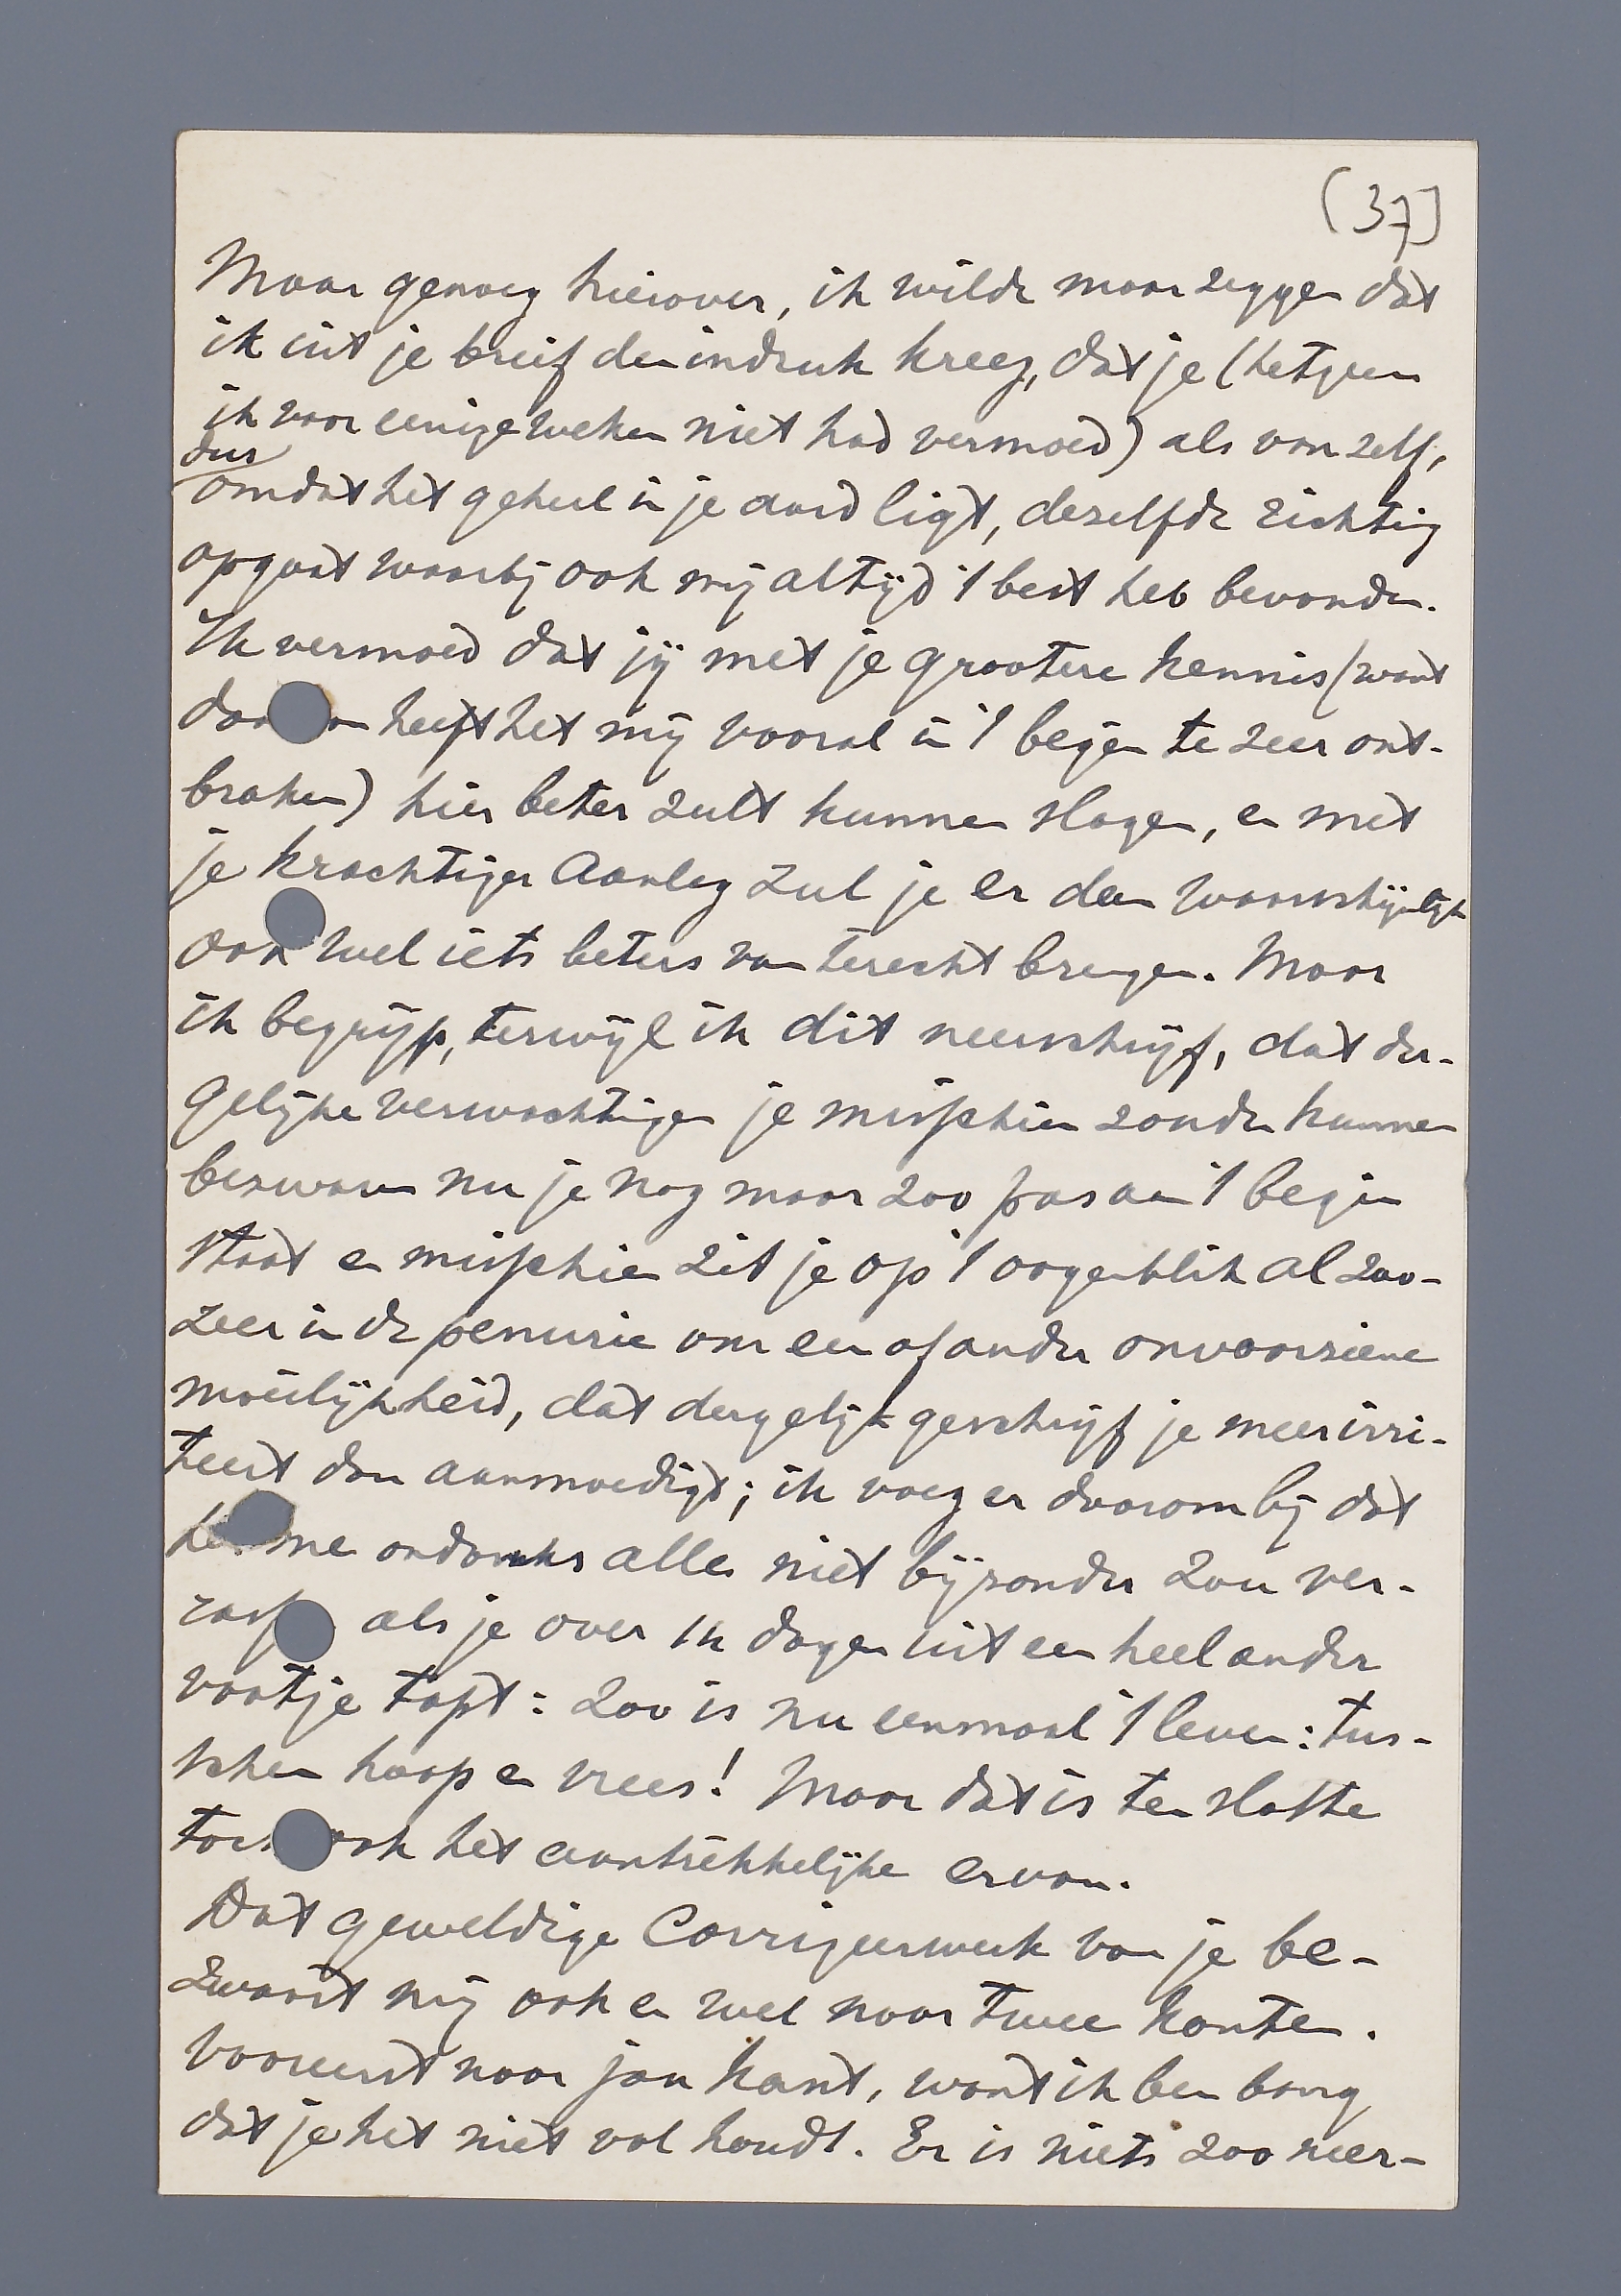 (37]
Maar genoeg hierover, ik wilde maar zeggen dat
ik uit je brief den indruk kreeg, dat je (hetgeen
ik voor eenige weken niet had vermoed) als van zelf,
dus
omdat het geheel in je aard ligt, dezelfde richting
opgaat waarbij ook mij altijd 't best heb bevonden.
Ik vermoed dat jij met je grootere kennis (want
daa an heeft het mij vooral in 't begin te zeer ont-
broken) hier beter zult kunnen slagen, en met
je krachtiger aanleg zul je er dan waarschijnlijk
ook wel iets beters van terecht brengen. Maar
ik begrijp, terwijl ik dit neerschrijf, dat der-
gelijke verwachtingen je misschien zouden kunnen
bezwaren nu je nog maar zoo pas aan 't begin
staat en misschien zit je op 't oogenblik al zoo-
zeer in de penurie om een of ander onvoorziene
moeilijkheid, dat dergelijk geschrijf je meer irri-
teert dan aanmoedigt; ik voeg er daarom bij dat
he me ondanks alles niet bijzonder zou ver-
ras als je over 14 dagen uit een heel ander
vaatje tapt: zoo is nu eenmaal 't leven: tus-
schen hoop en vrees! Maar dat is ten slotte
toch ook het aantrekkelijke ervan.
Dat geweldige corrigeerwerk van je be-
zwaart mij ook en wel naar twee kanten.
Vooreerst naar jou kant, want ik ben bang
dat je het niet vol houdt. Er is niets zoo neer-